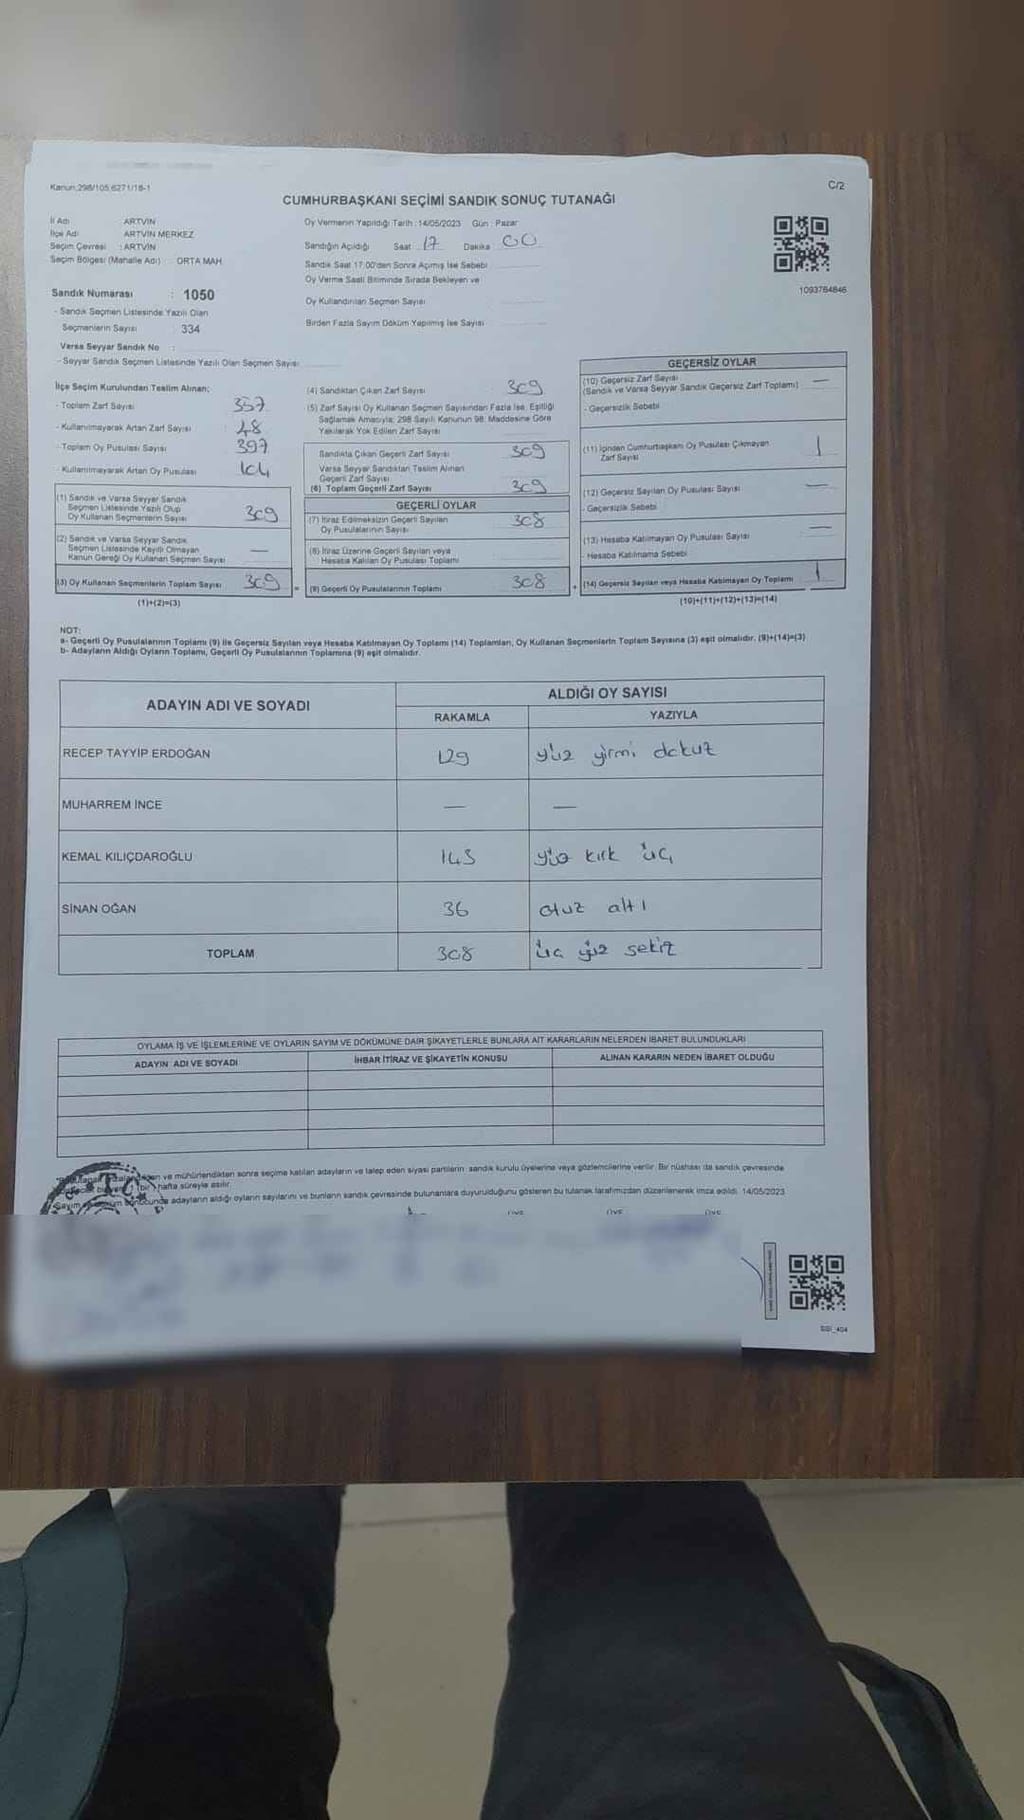 Kanun.298/105,6271/18-1
C/2
CUMHURBAŞKANI SEÇİMİ SANDIK SONUÇ TUTANAĞI
İl Adı ARTVİN
İlçe Adı ARTVİN MERKEZ
Seçim Çevresi : ARTVİN
Seçim Bölgesi (Mahalle Adı) : ORTA MAH.
Sandık Numarası : 1050
- Sandık Seçmen Listesinde Yazılı Olan
Seçmenlerin Sayısı : 334
Varsa Seyyar Sandık No :
- Seyyar Sandık Seçmen Listesinde Yazılı Olan Seçmen Sayısı
Oy Vermenin Yapıldığı Tarih : 14/05/2023 Gün : Pazar
Sandığın Açıldığı Saat 17 Dakika 00
Sandık Saat 17:00'den Sonra Açımış İse Sebebi
Oy Verme Saati Bitiminde Sırada Bekleyen ve
Oy Kullandırılan Seçmen Sayısı
Birden Fazla Sayım Döküm Yapılmış İse Sayısı
1093764846
İlçe Seçim Kurulundan Teslim Alınan;
- Toplam Zarf Sayısı 357
- Kullanılmayarak Artan Zarf Sayısı : 48
- Toplam Oy Pusulası Sayısı 397
- Kullanılmayarak Artan Oy Pusulası 104
(1) Sandık ve Varsa Seyyar Sandık
Seçmen Listesinde Yazılı Olup
Oy Kullanan Seçmenlerin Sayısı 309
(2) Sandık ve Varsa Seyyar Sandık
Seçmen Listesinde Kayıtlı Olmayan
Kanun Gereği Oy Kullanan Seçmen Sayısı —
(3) Oy Kullanan Seçmenlerin Toplam Sayısı 309
(1)+(2)=(3)
(4) Sandıktan Çıkan Zarf Sayısı 309
(5) Zarf Sayısı Oy Kullanan Seçmen Sayısından Fazla İse, Eşitliği
Sağlamak Amacıyla; 298 Sayılı Kanunun 98. Maddesine Göre
Yakılarak Yok Edilen Zarf Sayısı
Sandıkta Çıkan Geçerli Zarf Sayısı 309
Varsa Seyyar Sandıktan Teslim Alınan
Geçerli Zarf Sayısı
(6) Toplam Geçerli Zarf Sayısı 309
GEÇERLİ OYLAR
(7) İtiraz Edilmeksizin Geçerli Sayılan
Oy Pusulalarının Sayısı 308
(8) İtiraz Üzerine Geçerli Sayılan veya
Hesaba Katılan Oy Pusulası Toplamı
= (9) Geçerli Oy Pusulalarının Toplamı 308
GEÇERSİZ OYLAR
(10) Geçersiz Zarf Sayısı
(Sandık ve Varsa Seyyar Sandık Geçersiz Zarf Toplamı) —
- Geçersizlik Sebebi
(11) İçinden Cumhurbaşkanı Oy Pusulası Çıkmayan
Zarf Sayısı 1
(12) Geçersiz Sayılan Oy Pusulası Sayısı —
- Geçersizlik Sebebi
(13) Hesaba Katılmayan Oy Pusulası Sayısı —
- Hesaba Katılmama Sebebi
+ (14) Geçersiz Sayılan veya Hesaba Katılmayan Oy Toplamı 1
(10)+(11)+(12)+(13)=(14)
NOT:
a- Geçerli Oy Pusulalarının Toplamı (9) ile Geçersiz Sayılan veya Hesaba Katılmayan Oy Toplamı (14) Toplamları, Oy Kullanan Seçmenlerin Toplam Sayısına (3) eşit olmalıdır. (9)+(14)=(3)
b- Adayların Aldığı Oyların Toplamı, Geçerli Oy Pusulalarının Toplamına (9) eşit olmalıdır.
ADAYIN ADI VE SOYADI
ALDIĞI OY SAYISI
RAKAMLA YAZIYLA
RECEP TAYYİP ERDOĞAN 129 yüz yirmi dokuz
MUHARREM İNCE — —
KEMAL KILIÇDAROĞLU 143 yüz kırk üç
SİNAN OĞAN 36 otuz altı
TOPLAM 308 üç yüz sekiz
OYLAMA İŞ VE İŞLEMLERİNE VE OYLARIN SAYIM VE DÖKÜMÜNE DAİR ŞİKAYETLERLE BUNLARA AİT KARARLARIN NELERDEN İBARET BULUNDUKLARI
ADAYIN ADI VE SOYADI İHBAR İTİRAZ VE ŞİKAYETİN KONUSU ALINAN KARARIN NEDEN İBARET OLDUĞU
ve mühürlendikten sonra seçime katılan adayların ve talep eden siyasi partilerin sandık kurulu üyelerine veya gözlemcilerine verilir. Bir nüshası da sandık çevresinde
(bir) hafta süreyle asılır.
adayların aldığı oyların sayılarını ve bunların sandık çevresinde bulunanlara duyurulduğunu gösteren bu tutanak tarafımızdan düzenlenerek imza edildi. 14/05/2023
T.C.
ÜYE ÜYE ÜYE
SSI_404